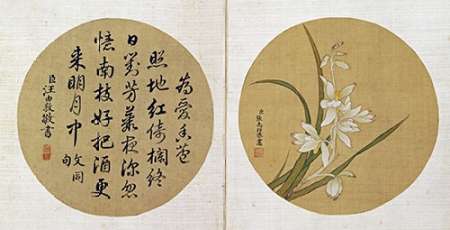 為愛香苞
照地紅倚欄終
日對芳叢夜深忽
憶南枝好把酒更
來明月中
文同
句
臣汪由敦敬書
臣張恭畫